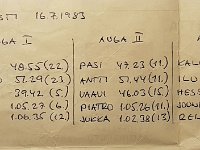 STI 16.7.1983
GA I AUGA II
48.55 (22) PASI 47.23 (11.) KAL
51.29 (23) ANTTI 51.44 (11.) ILU
39.42 (5.) VAAVI 46.03 (15.) HES
1.05.27 (6.) PIATRO 1.05.26 (11.) JOON
1.06.35 (12) JUKKA 1.02.38 (13) REL